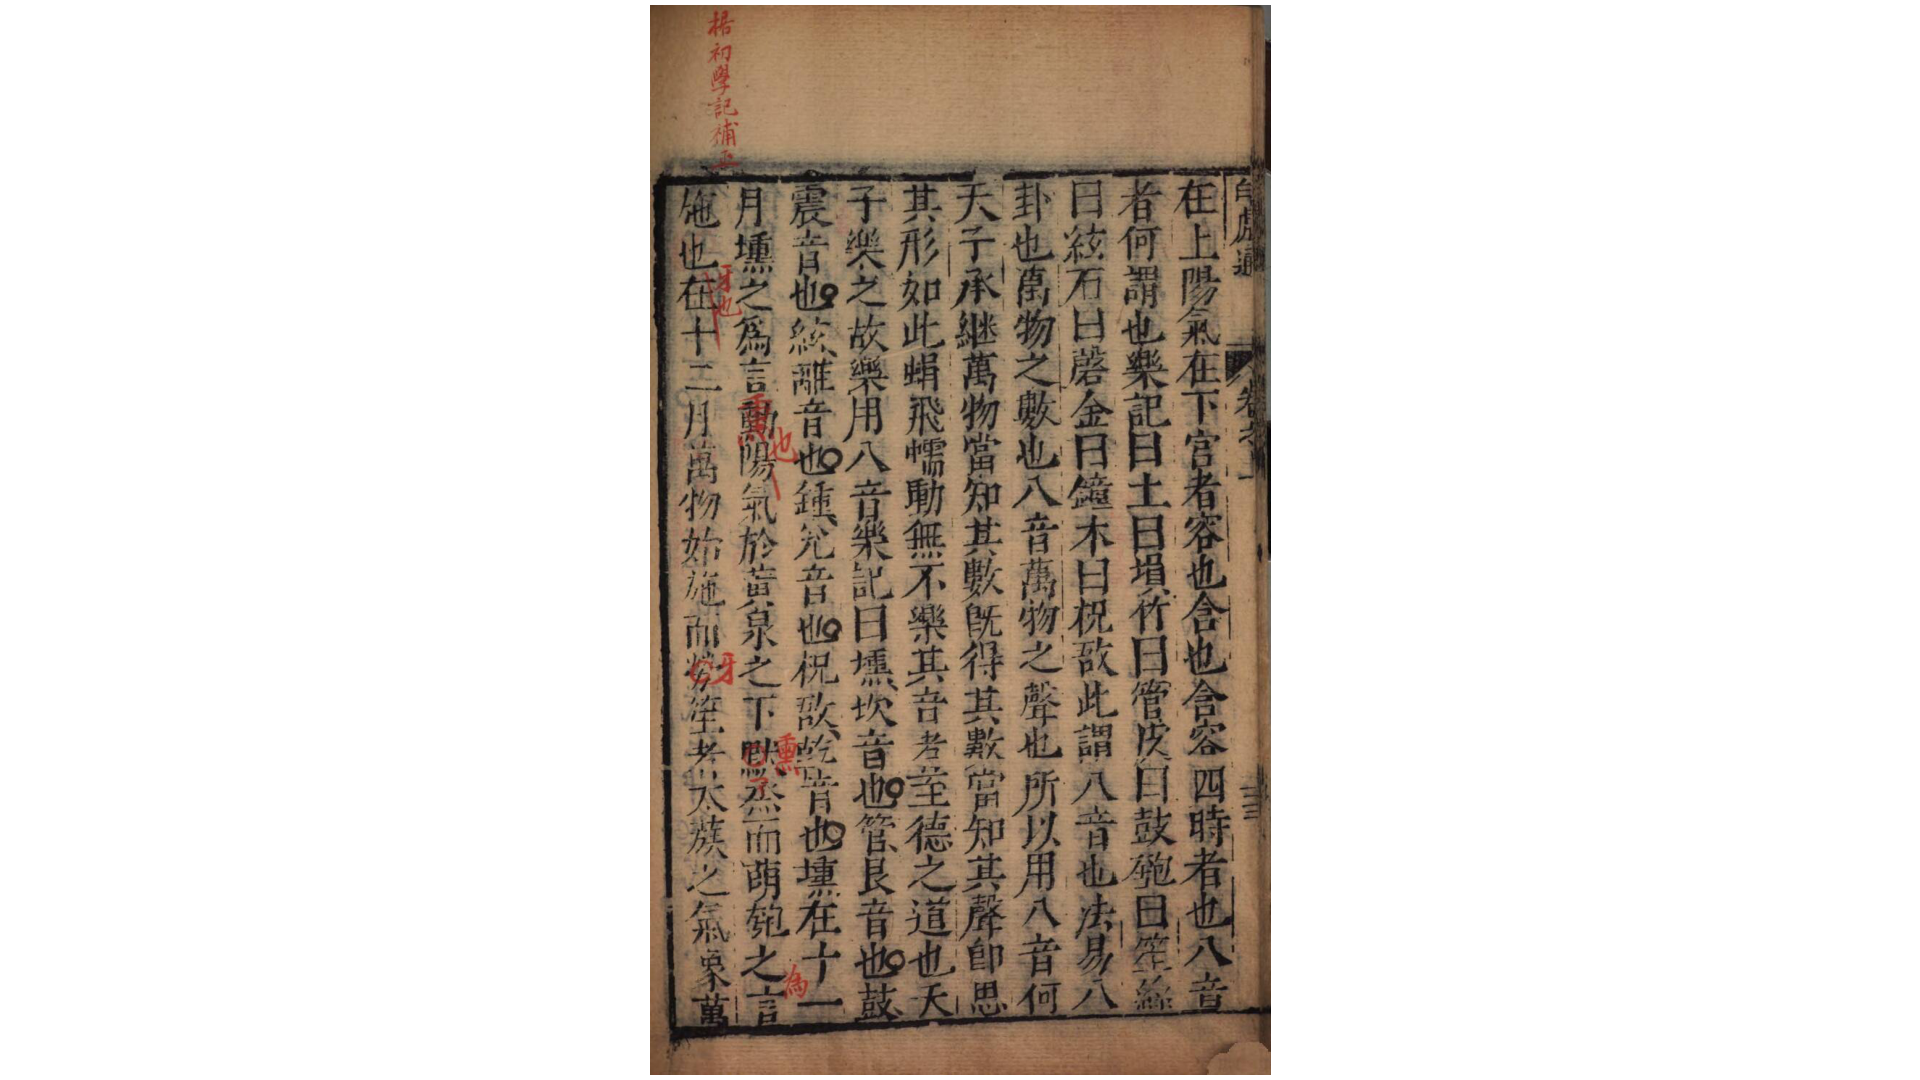 白虎通 卷之一 三三
在上陽氣在下宫者容也含也含容四時者也八音
者何謂也樂記曰土曰塤竹曰管皮曰鼓匏曰笙絲
曰絃石曰磬金曰鐘木曰柷敔此謂八音也法易八
卦也萬物之數也八音萬物之聲也所以用八音何
天子承継萬物當知其數既得其數當知其聲卽思
其形如此蜎飛蠕動無不樂其音者至德之道也天
子樂之故樂用八音樂記曰壎坎音也管艮音也鼓
震音也絃離音也鍾兊音也柷敔乾音也壎在十一
月壎之爲言勳陽氣於黄泉之下默烝而萌匏之言
施也在十二月萬物始施而勞笙者太蔟之氣象萬
㨿初學記補正
牙也
熏也
牙
熏
為